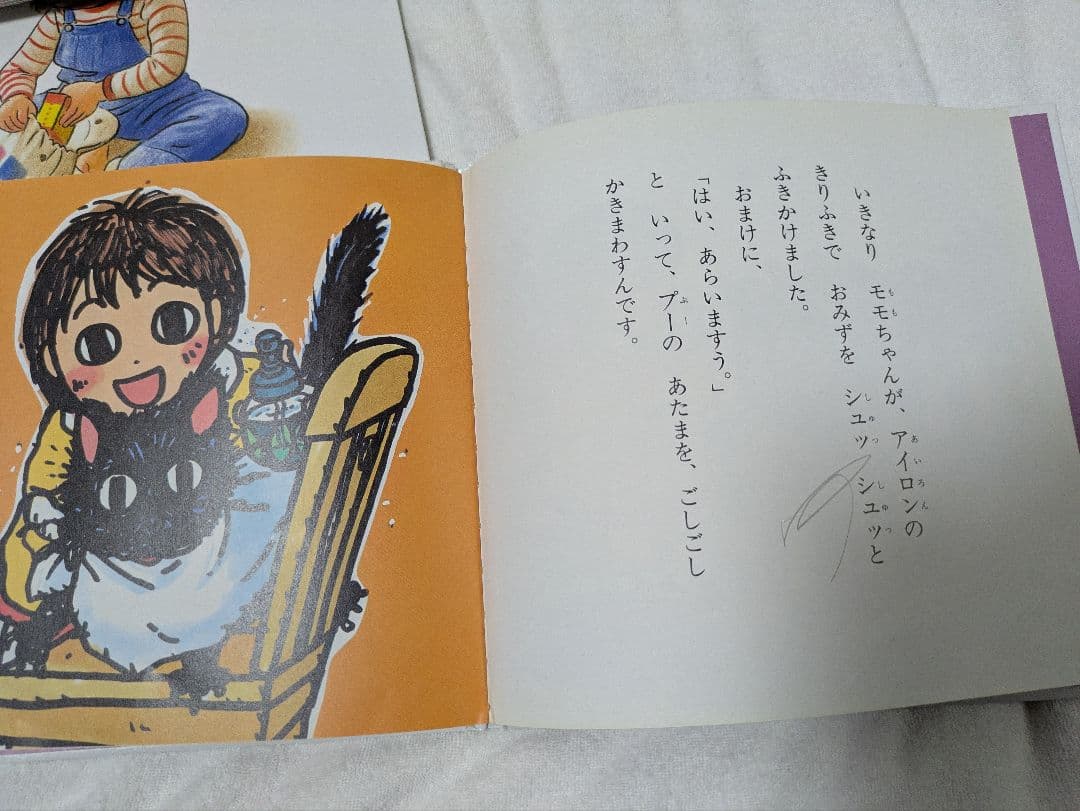 いきなり　モモちゃんが、アイロンの
きりふきで　おみずを　シュッ　シュッと
ふきかけました。
おまけに、
「はい、あらいますう。」
と　いって、プーの　あたまを、ごしごし
かきまわすんです。